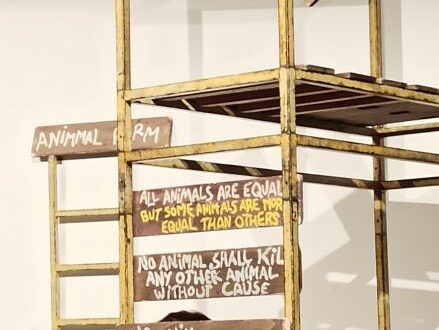 ANIMMAL
ALL ANIMALS ARE EQUAL
BUT SOME ANIMALS ARE
EQUAL THAN OTHERS
NO ANIMAL SHALL
ANY OTHER ANIMAL
WITHOUT CAUSE